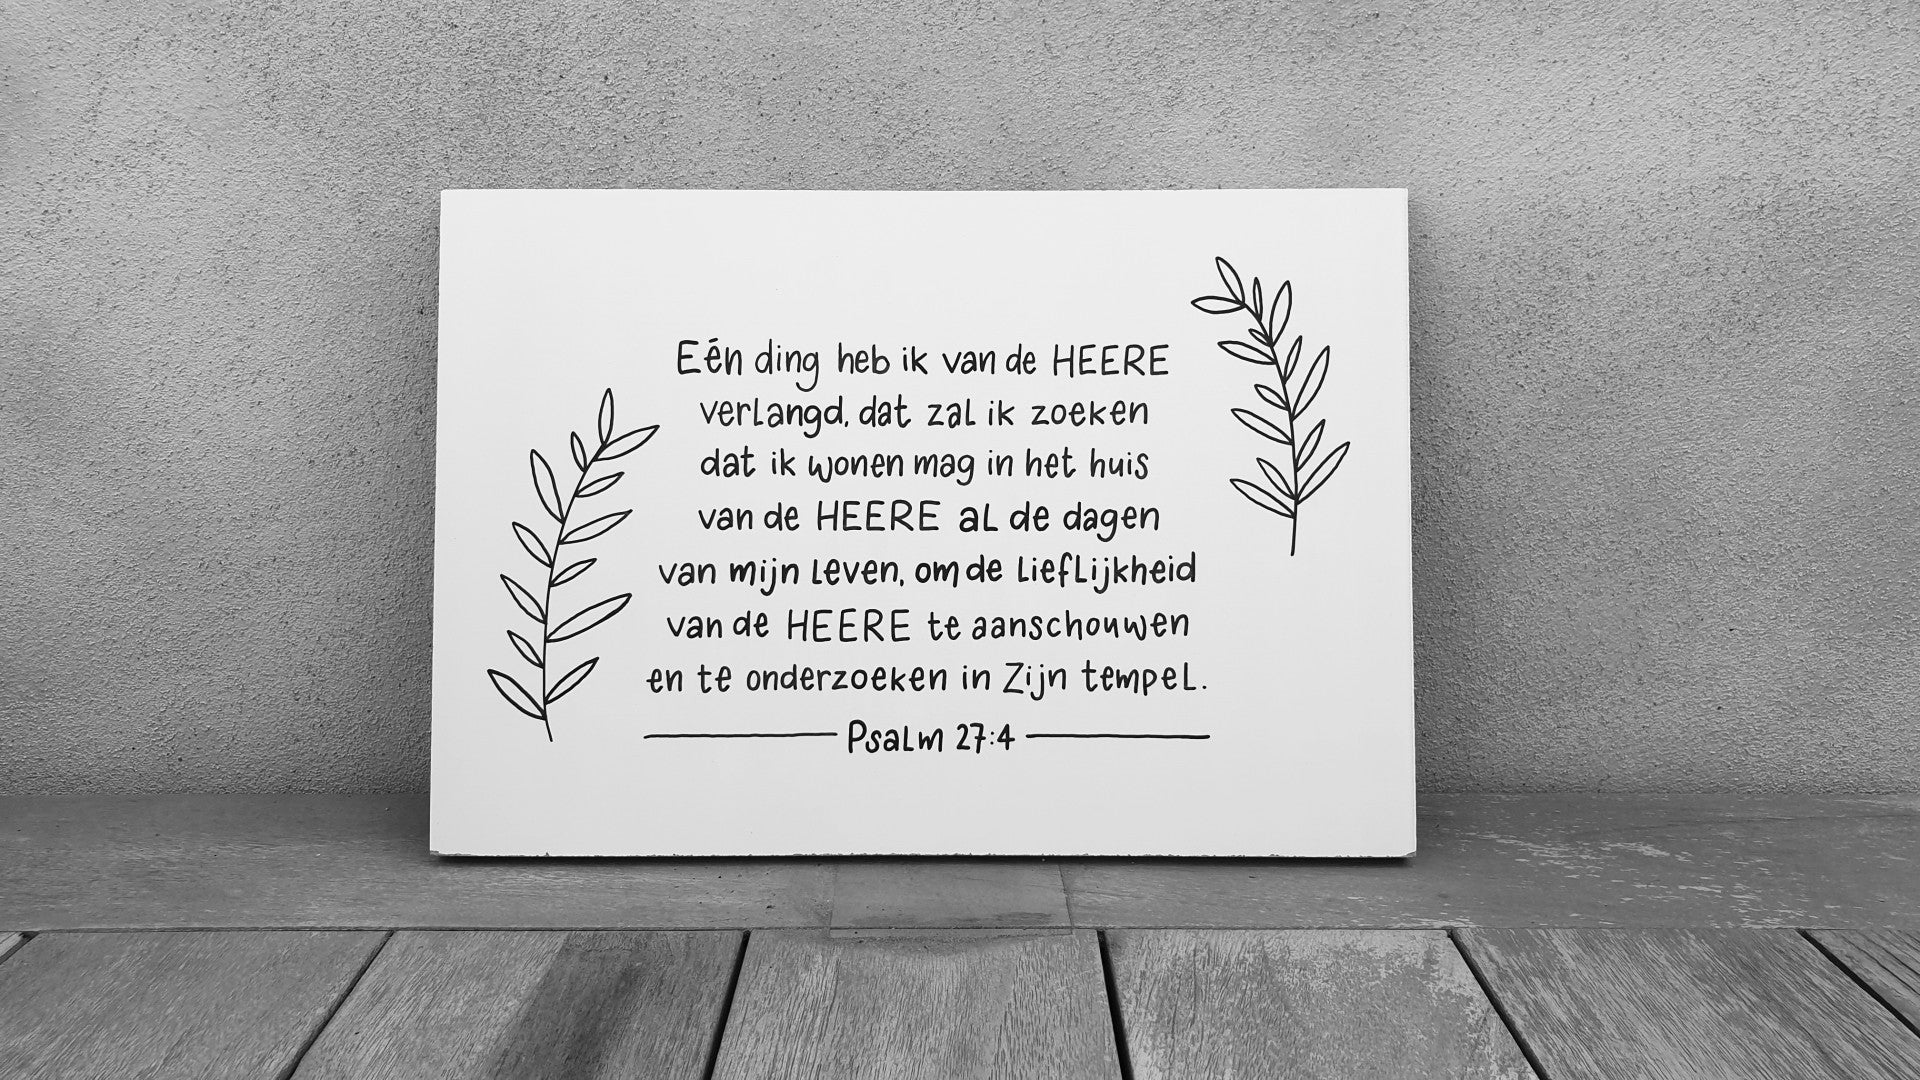 Eén ding heb ik van de HEERE
verlangd, dat zal ik zoeken
dat ik wonen mag in het huis
van de HEERE al de dagen
van mijn leven, om de lieflijkheid
van de HEERE te aanschouwen
en te onderzoeken in Zijn tempel.
Psalm 27:4